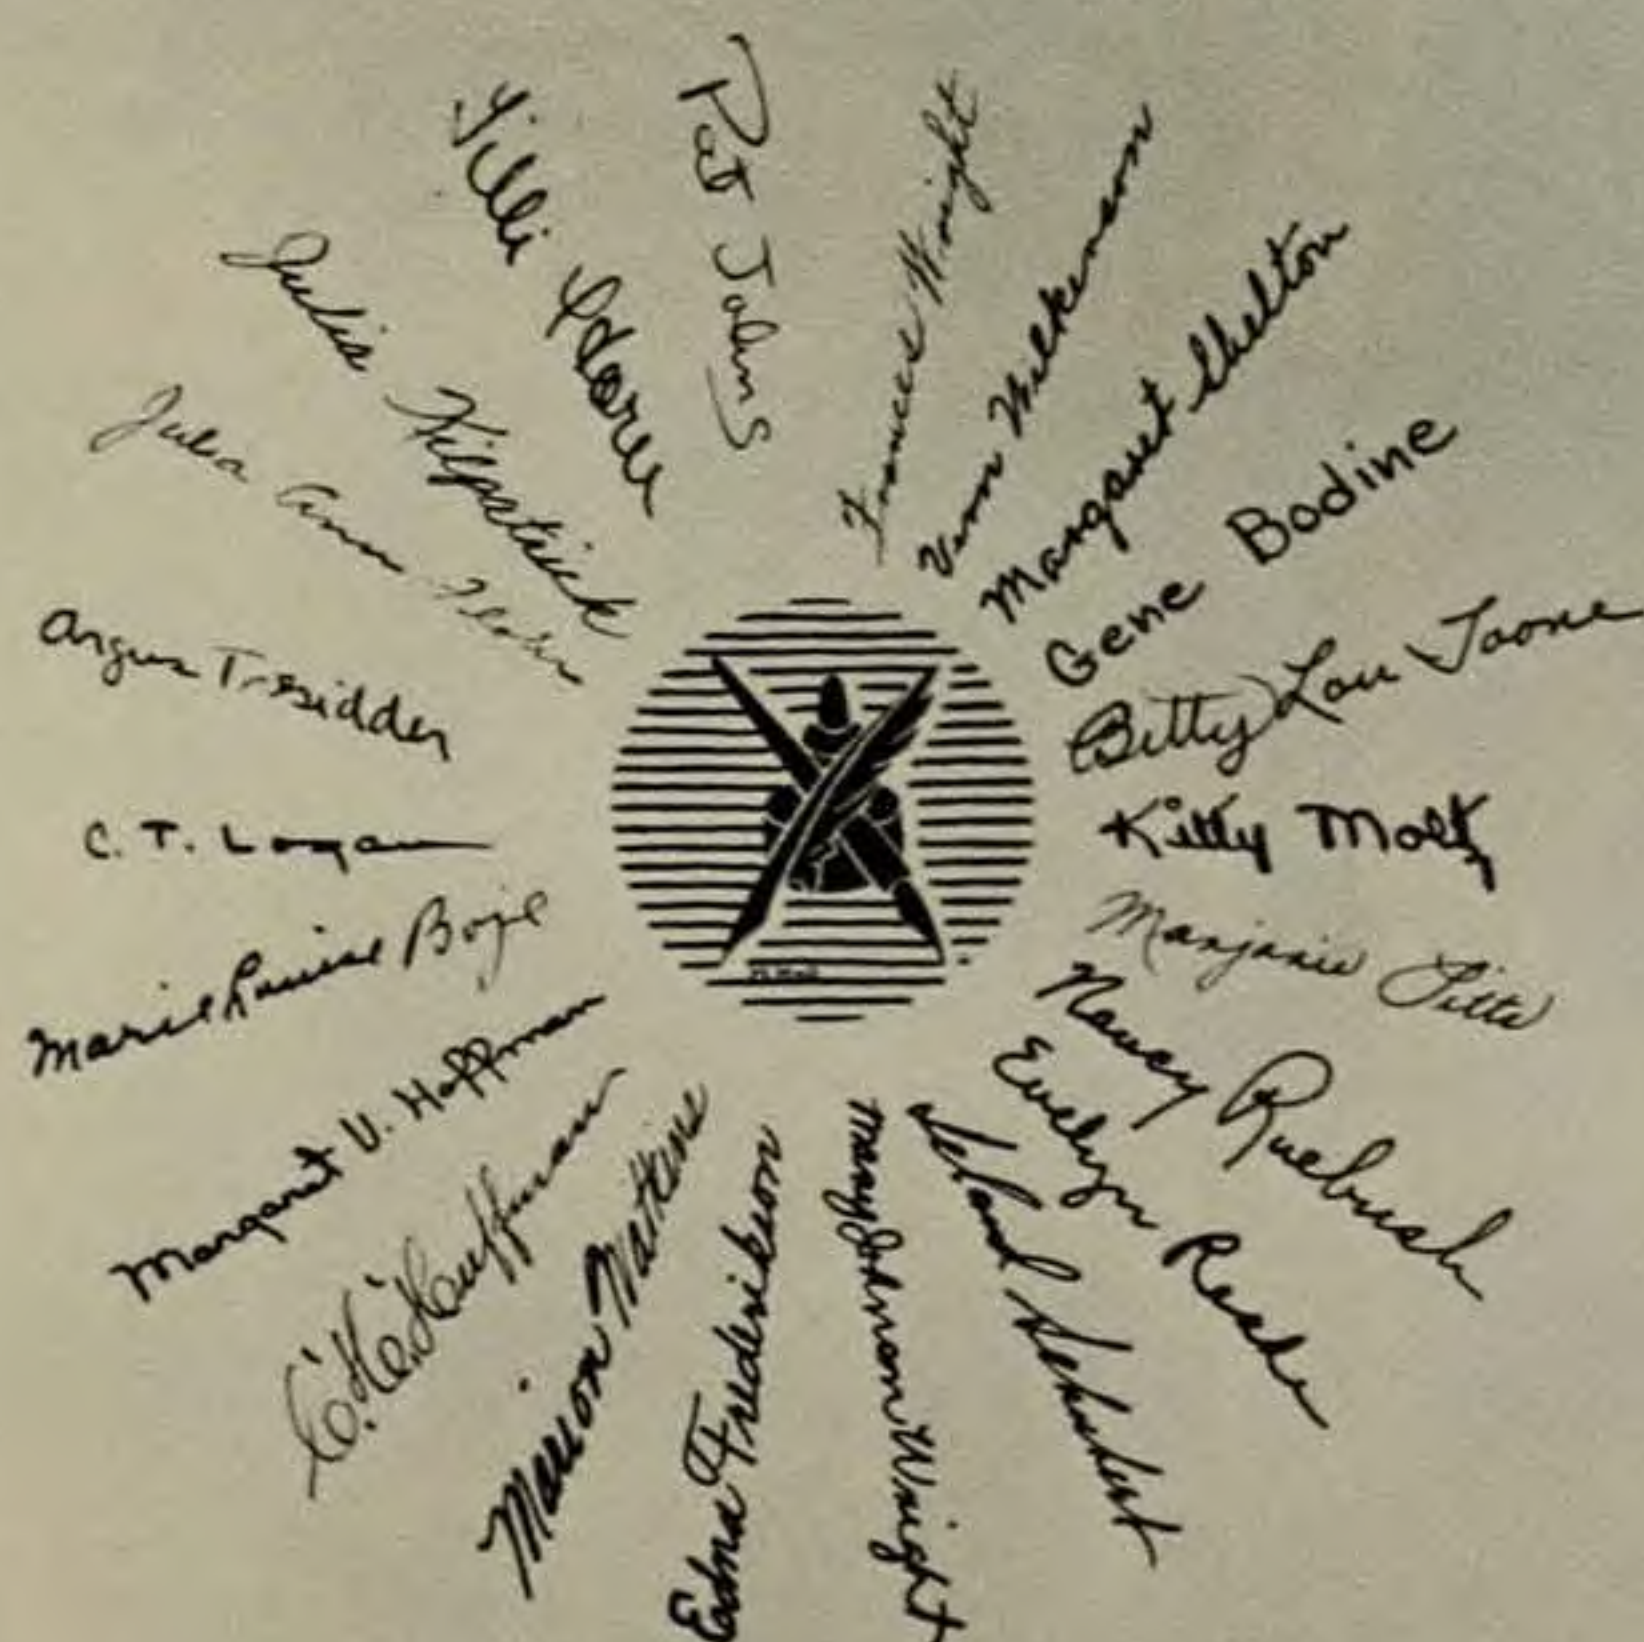 Pat Johns
Frances Wright
Vern Wilkerson
Margaret Shelton
Gene Bodine
Betty Lou Toone
Kitty Moltz
Marjorie Pitts
Nancy Ruebush
Evelyn Reade
Leland Schubert
Mary Johnson Wright
Edna T. Frederikson
Marion Watkins
C. H. Hauffman
Margaret V. Hoffman
Marie Louise Boje
C. T. Logan
Argus Tresidder
Julia Ann Flohr
Julia Kilpatrick
Tilli Horn